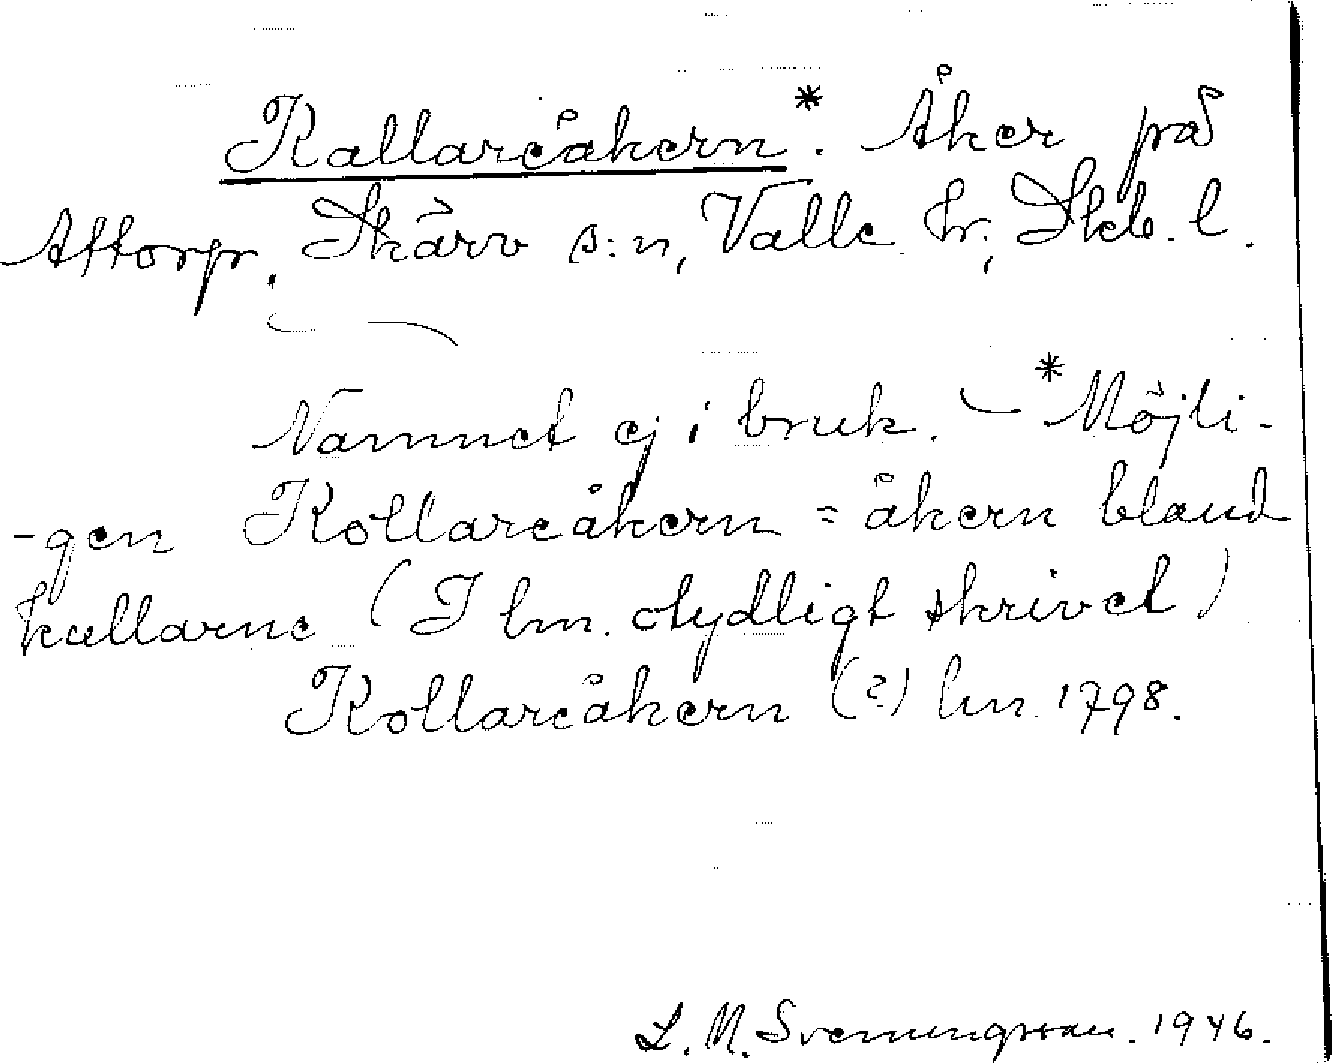 Kallareåkern*. Åker på
Attorp, Skärv s:n, Valle hr; Skb. l.
Namnet ej i bruk. - *Möjli-
-gen Kollareåkern = åkern bland
kullarne (I lm. otydligt skrivet)
Kollareåkern (?) lm. 1798.
L. M. Svenungsson. 1946.